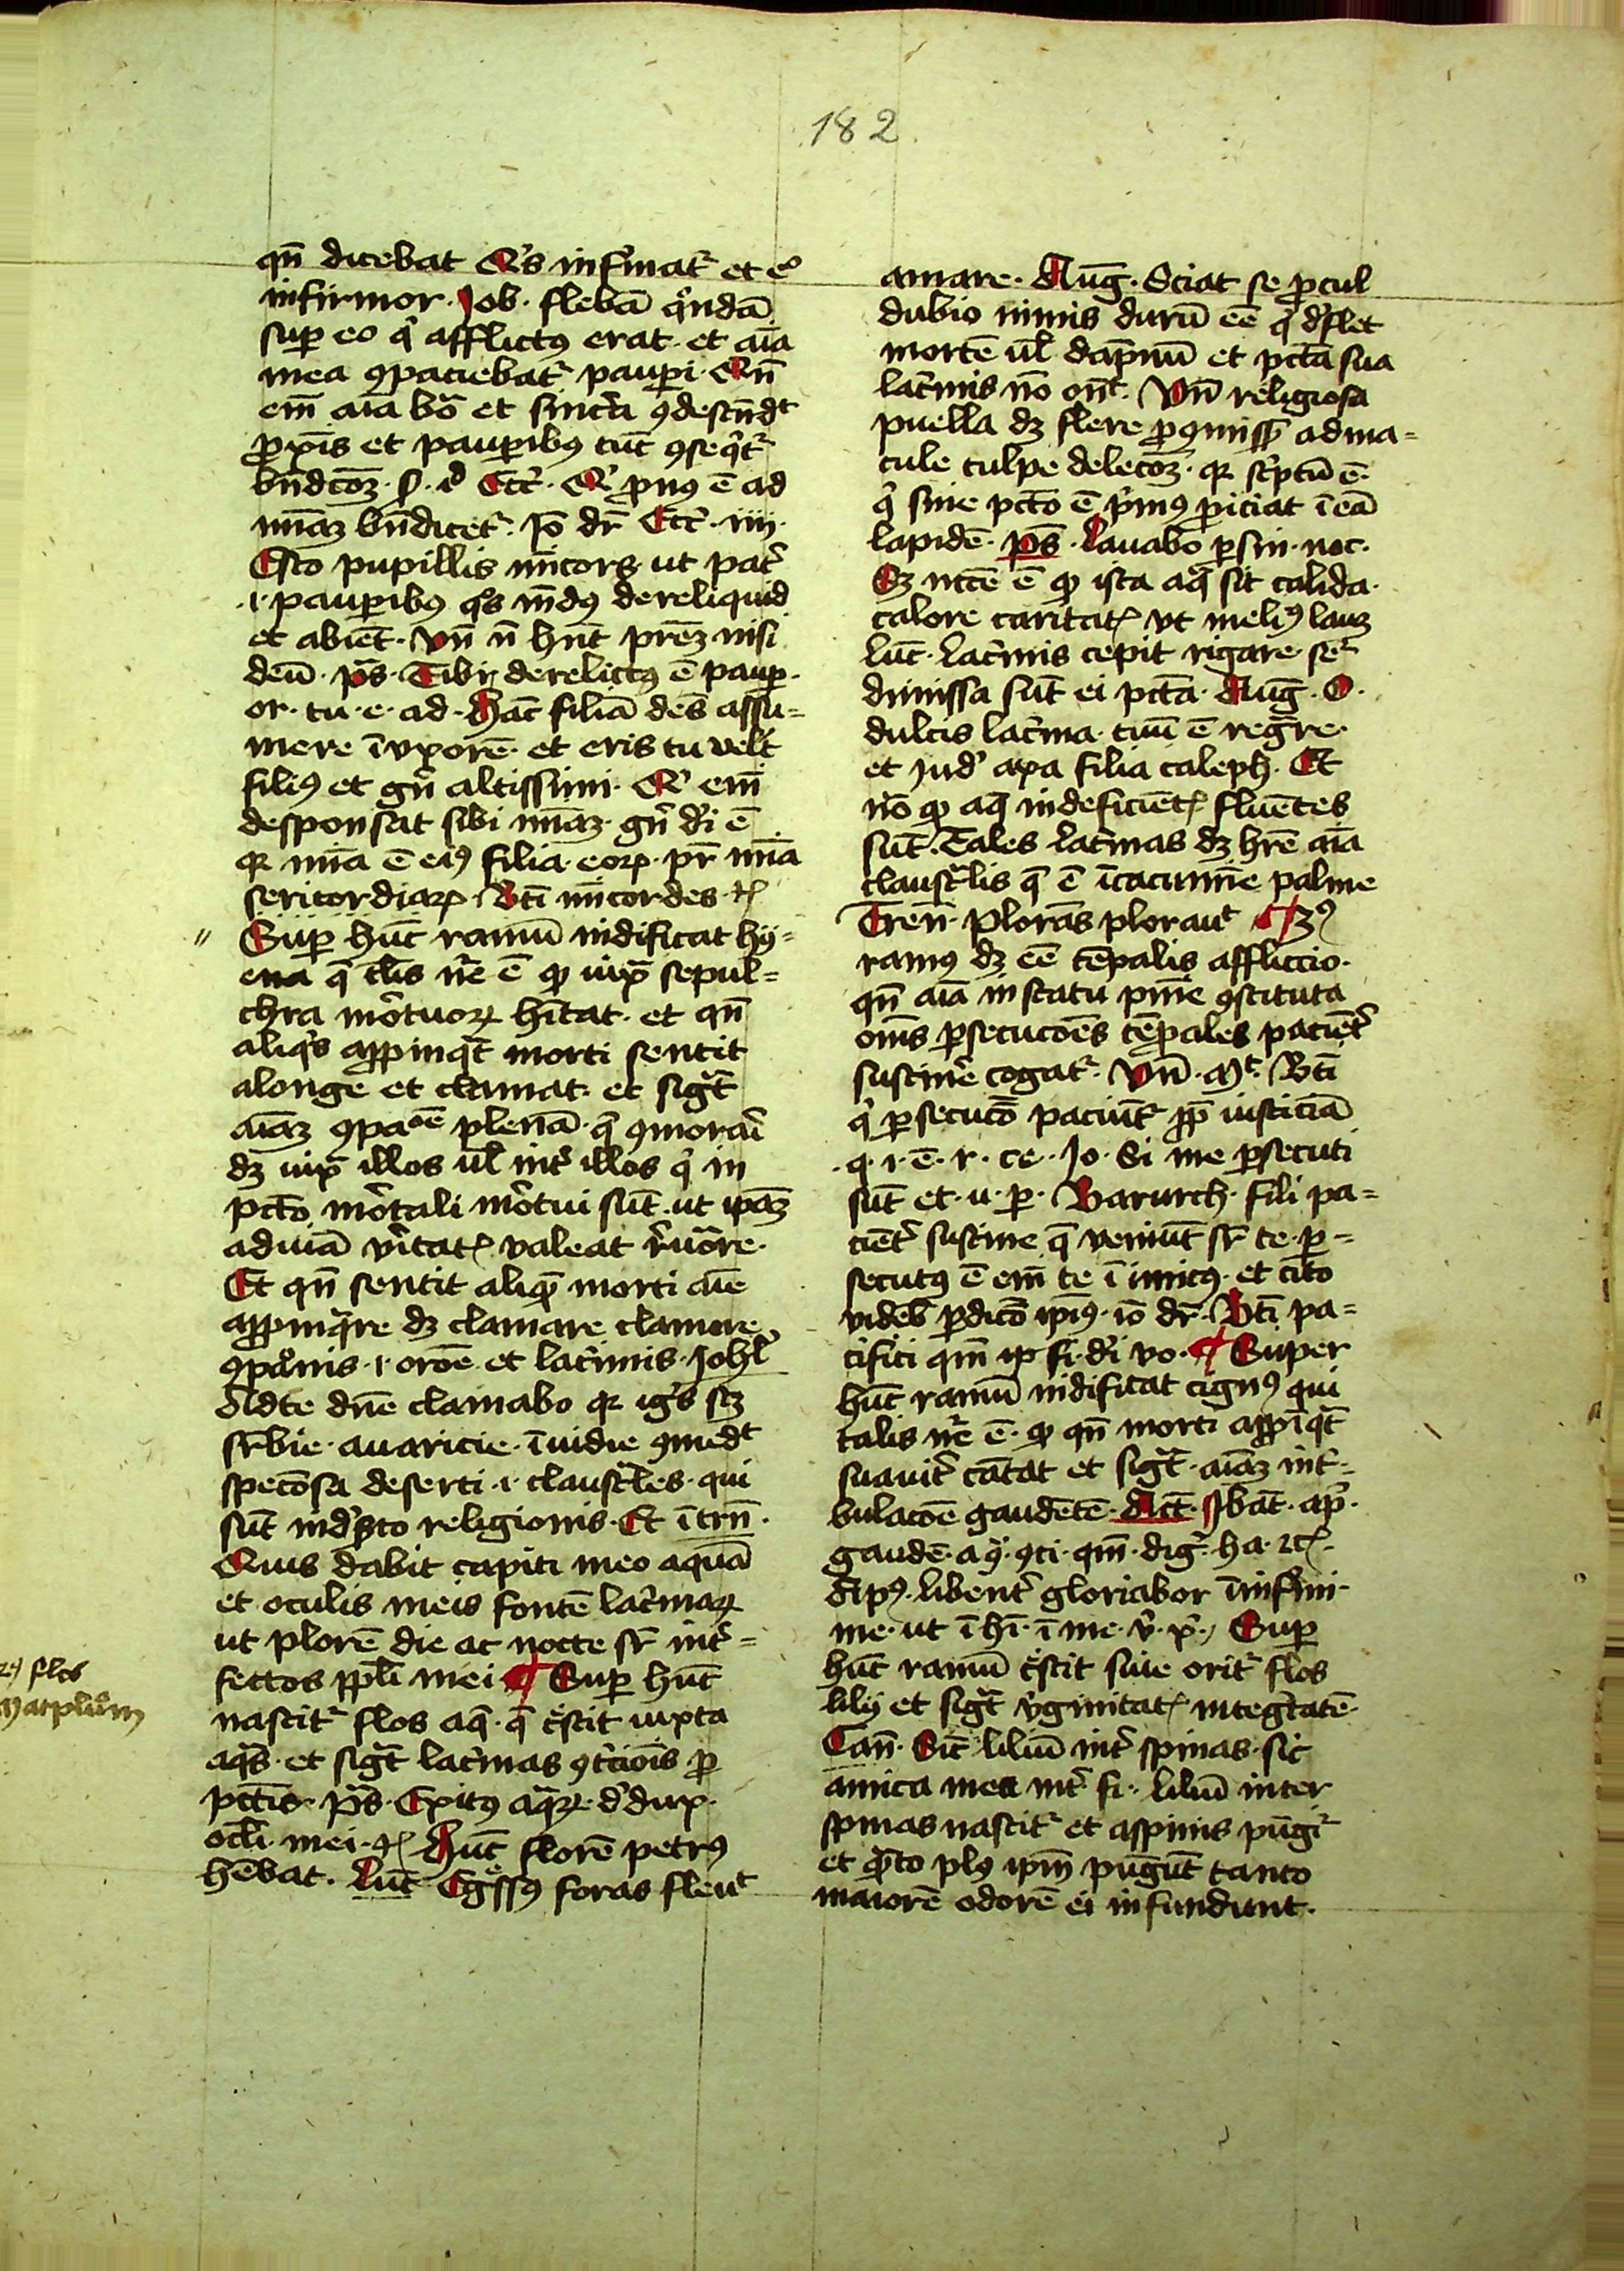 182
qn̄ dicebat Qis infirmat᷑ et eº
infirmor. Job. flebā qͦndā
sup eo qͥ afflictꝰ erat. et aīa
mea ꝯpaciebat᷑ paupi. Qn̄
em̄ aīa bōa et sincera ꝯdescēdᵗ
ꝓxīs et paupibꝰ tūc ꝯseqͥt᷑
bn̄dcōꝫ. Ecc̄. Qͥ pnꝰ ē ad
mīaꝫ bn̄dicet᷑. Iō dr̄ Ecc̄. iiij.
Esto pupillis mīcors ut pat̉
.i. paupibꝰ qͦs mūdꝰ dereliquid
et abiēt. Vn̄ n̄ hn̄t pr̄eꝫ nisi
deū. pˢ. Tibi derelictꝰ ē paup.
or. tu. e. ad. Hāc filiā des̄ assu=
mere ī vxorē. et eris tu velut
filiꝰ et gn̄ altissimi. Qͥ em̄
desponsat sibi mīaꝫ. gn̄ di ē
qꝛ mīa ē eiꝰ filia. eoꝝ. pr̄ mīa
sericordiaꝝ. Bt̄i mīcordes. ꝛc̄
Sup hūc ramū nidificat hy=
ena q̄ tl̄is nr̄e ē ꝙ iuxͣ sepul=
chra mortuoꝝ hītat. et qn̄
aliqͥs apꝓinqͣt morti sentit
alonge et clamat. et sigͣt
aīaꝫ ꝯpaōe plenā. q̄ ꝯmorari
dꝫ iuxͣ illos ul̄ int̉ illos qͥ in
pctō mortali mortui sūt. ut ipāꝫ
ad viā vͥitatꝭ valeat reuocare.
Et qn̄ sentit aliquē morti aīe
apꝓinqͣre dꝫ clamare clamore
ꝯpaōnis .i. orōe et lacͥmis. Johel
Ad te dn̄e clamabo qꝛ ignis scꝫ
sr̄bie. auaricie. īuidie ꝯmedᵗ
speciōsa deserti .i. claustͣles. qui
sūt in dꝰto religionis. Et ī trn̄.
Quis dabit capiti meo aquā
et oculis meis fontē lacͥmaꝝ
ut plorē die ac nocte sr̄ int̉=
fectos ppl̄i mei ¶ Sup hūc
nascit᷑ flos aq̄. q̄ cͤscit iuxta
aqͣs. et sigͣt lacͥmas ꝯtͥciōis ꝓ
pctīs. pˢ. Exitꝰ aqͣꝝ. dedux.
ocl̄i mei. ꝛc̄ Hūc florē petrꝰ
hēbat. Luc̄ Egͤssꝰ foras fleuᵗ
flos
amare. Auḡ. Sciat se ꝓcul
dubio nimis durū eē qͥ deflet
mortē ul̄ dāpnū et pctā sua
lacͥmis nō ondᵗ. Vn̄ religiosa
puella dꝫ flere ꝓ ꝯmissis ad ma=
cule culpe delecōꝫ. qꝛ scͥptū ē.
qͥ sine pctō ē pͥmꝰ piciat ī eā
lapidē. pˢ. Lauabo p sin. noc.
Sꝫ nccē ē ꝙ ista aq̄ sit calida.
calore caritatꝭ vt meliꝰ lauꝫ
Luc̄. Lacͥmis cepit rigare. se᷑
dimissa sūt ei pctā. Auḡ. O.
dulcis lacͥma. tuū ē regͣre.
et Jud̓ axa filia caleph. Et
nō ꝙ aq̄ indeficientꝭ fluentes
sūt. Tales lacͥmas dꝫ hr̄e aīa
claustͣlis q̄ ē ī cacumīe palme
Tren̄. Plorās plorauᵗ ¶ 3ꝰ
ramꝰ dꝫ eē tēpalis affliccio.
qn̄ aīa in statu pnīe ꝯstituta
om̄s psecucōēs tēpales paciēt̉
sustinēe cogat᷑. Vn̄. Mᵗ. Bt̄i
qͥ psecucō̄ paciūt᷑ ꝓp̄ iusticiā
.q. i. ē. r. ce. Jo. Si me psecuti
sūt et. u. p. Barurch. fili pa=
ciēt̉ sustine q̄ veniūt sr̄ te. p=
secutꝰ ē em̄ te īimicꝰ. et cito
videb̄ pdicōꝫ ipiꝰ. iō dr̄. Bt̄i pa=
cifici qm̄ ip fi. di vo. ¶ Super
hūc ramū nidificat cignꝰ qui
talis nr̄e ē. ꝙ qn̄ morti apꝓīqͣt
suauit̉ cātat et sigͣt. aīaꝫ in tͥ=
bulacōē gaudētē. Act̄. Ibāt. ap̄.
gaudē. a ꝯ. ꝯci. qm̄. dig᷑. ha. ꝛc̄.
Apꝰ. libent̉ gloriabor ī infirmi.
me. ut ī hī. ī me. v̉. x̉. Sup
hūc ramū cͤscit siue orit᷑ flos
lilij et sigͣt vͥginitatꝭ integͥtatē.
Can̄. Sic̄ liliū int̉ spinas. sic
amica mea int̉ fi. liliū inter
spinas nascit᷑ et a spinis pūgit᷑
et qͣnto plꝰ ipm̄ pūgūt tanto
maiorē odorē ei infundunt.